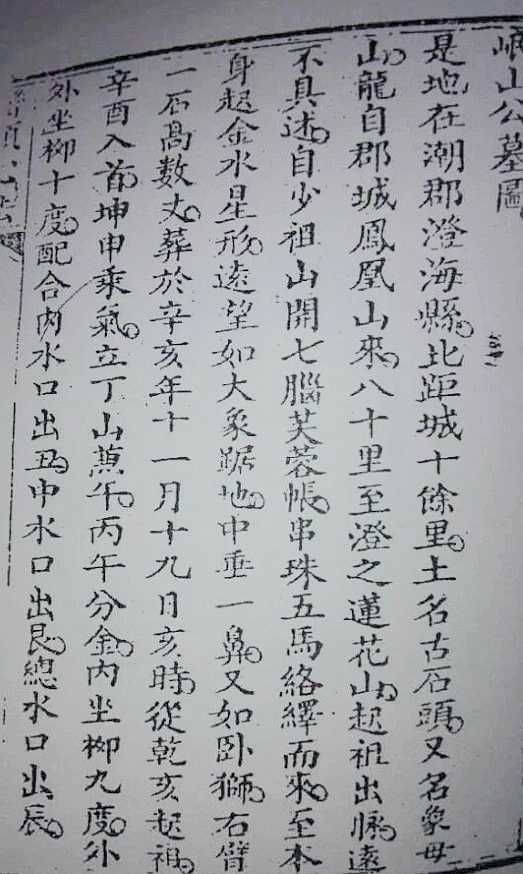 岷山公墓圖
是地在潮郡澄海縣。北距城十餘里。土名古石頭。又名象母
山。龍自郡城鳳凰山來。八十里至澄之蓮花山。起祖出脉。遠
不具述。自少祖山開七腦芙蓉帳。串珠五馬絡繹而來。至本
身起金水星形。遠望如大象踞地。中垂一鼻。又如卧獅。右臂
一石高數丈。葬於辛亥年十一月十九日亥時。從乾亥起祖。
辛酉入首。坤申乘氣。立丁山𠔥午。丙午分金。內坐柳九度。外
外坐柳十度。配合內水口出丑。中水口出艮。總水口出辰。